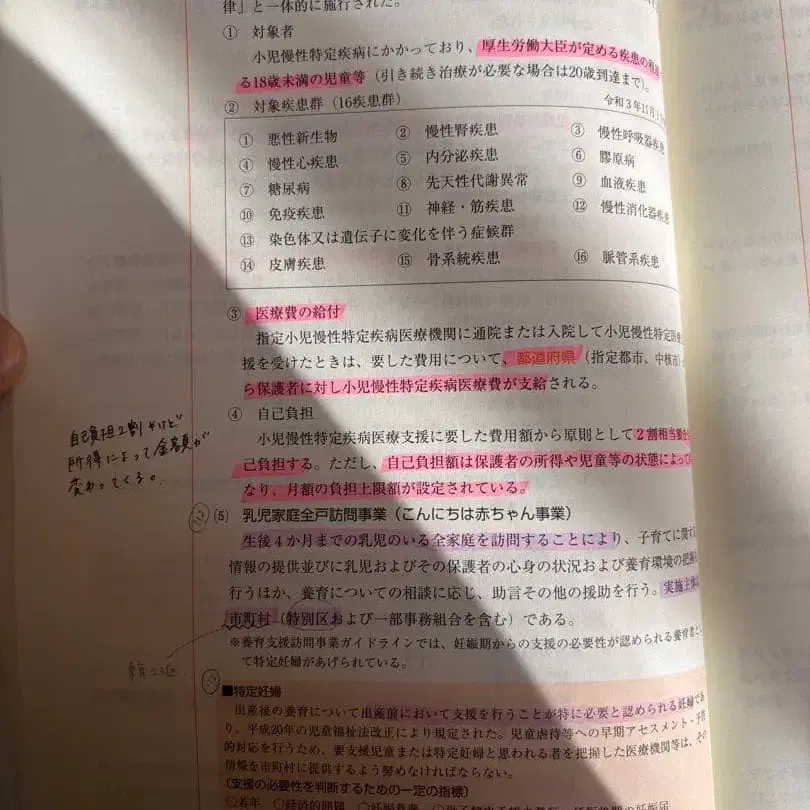 律」と一体的に施行された。
① 対象者
小児慢性特定疾病にかかっており、厚生労働大臣が定める疾患の
る18歳未満の児童等（引き続き治療が必要な場合は20歳到達まで）。
② 対象疾患群（16疾患群） 令和3年11月1
① 悪性新生物 ② 慢性腎疾患 ③ 慢性呼吸器疾患
④ 慢性心疾患 ⑤ 内分泌疾患 ⑥ 膠原病
⑦ 糖尿病 ⑧ 先天性代謝異常 ⑨ 血液疾患
⑩ 免疫疾患 ⑪ 神経・筋疾患 ⑫ 慢性消化器疾
⑬ 染色体又は遺伝子に変化を伴う症候群
⑭ 皮膚疾患 ⑮ 骨系統疾患 ⑯ 脈管系疾患
③ 医療費の給付
指定小児慢性特定疾病医療機関に通院または入院して小児慢性特定医
援を受けたときは、要した費用について、都道府県（指定都市、中核市
ら保護者に対し小児慢性特定疾病医療費が支給される。
④ 自己負担
小児慢性特定疾病医療支援に要した費用額から原則として2割相当額
己負担する。ただし、自己負担額は保護者の所得や児童等の状態によって
なり、月額の負担上限額が設定されている。
自己負担2割やけど
所得によって金額が
変わってくる。
⑸ 乳児家庭全戸訪問事業（こんにちは赤ちゃん事業）
生後4か月までの乳児のいる全家庭を訪問することにより、子育てに関す
情報の提供並びに乳児およびその保護者の心身の状況および養育環境の把握
行うほか、養育についての相談に応じ、助言その他の援助を行う。実施主体は
市町村（特別区および一部事務組合を含む）である。
※養育支援訪問事業ガイドラインでは、妊娠期からの支援の必要性が認められる養育者と
て特定妊婦があげられている。
東京23区
■特定妊婦
出産後の養育について出産前において支援を行うことが特に必要と認められる妊婦であ
り、平成20年の児童福祉法改正により規定された。児童虐待等への早期アセスメント・予防
的対応を行うため、要支援児童または特定妊婦と思われる者を把握した医療機関等は、その
情報を市町村に提供するよう努めなければならない。
〔支援の必要性を判断するための一定の指標〕
○若年 ○経済的問題